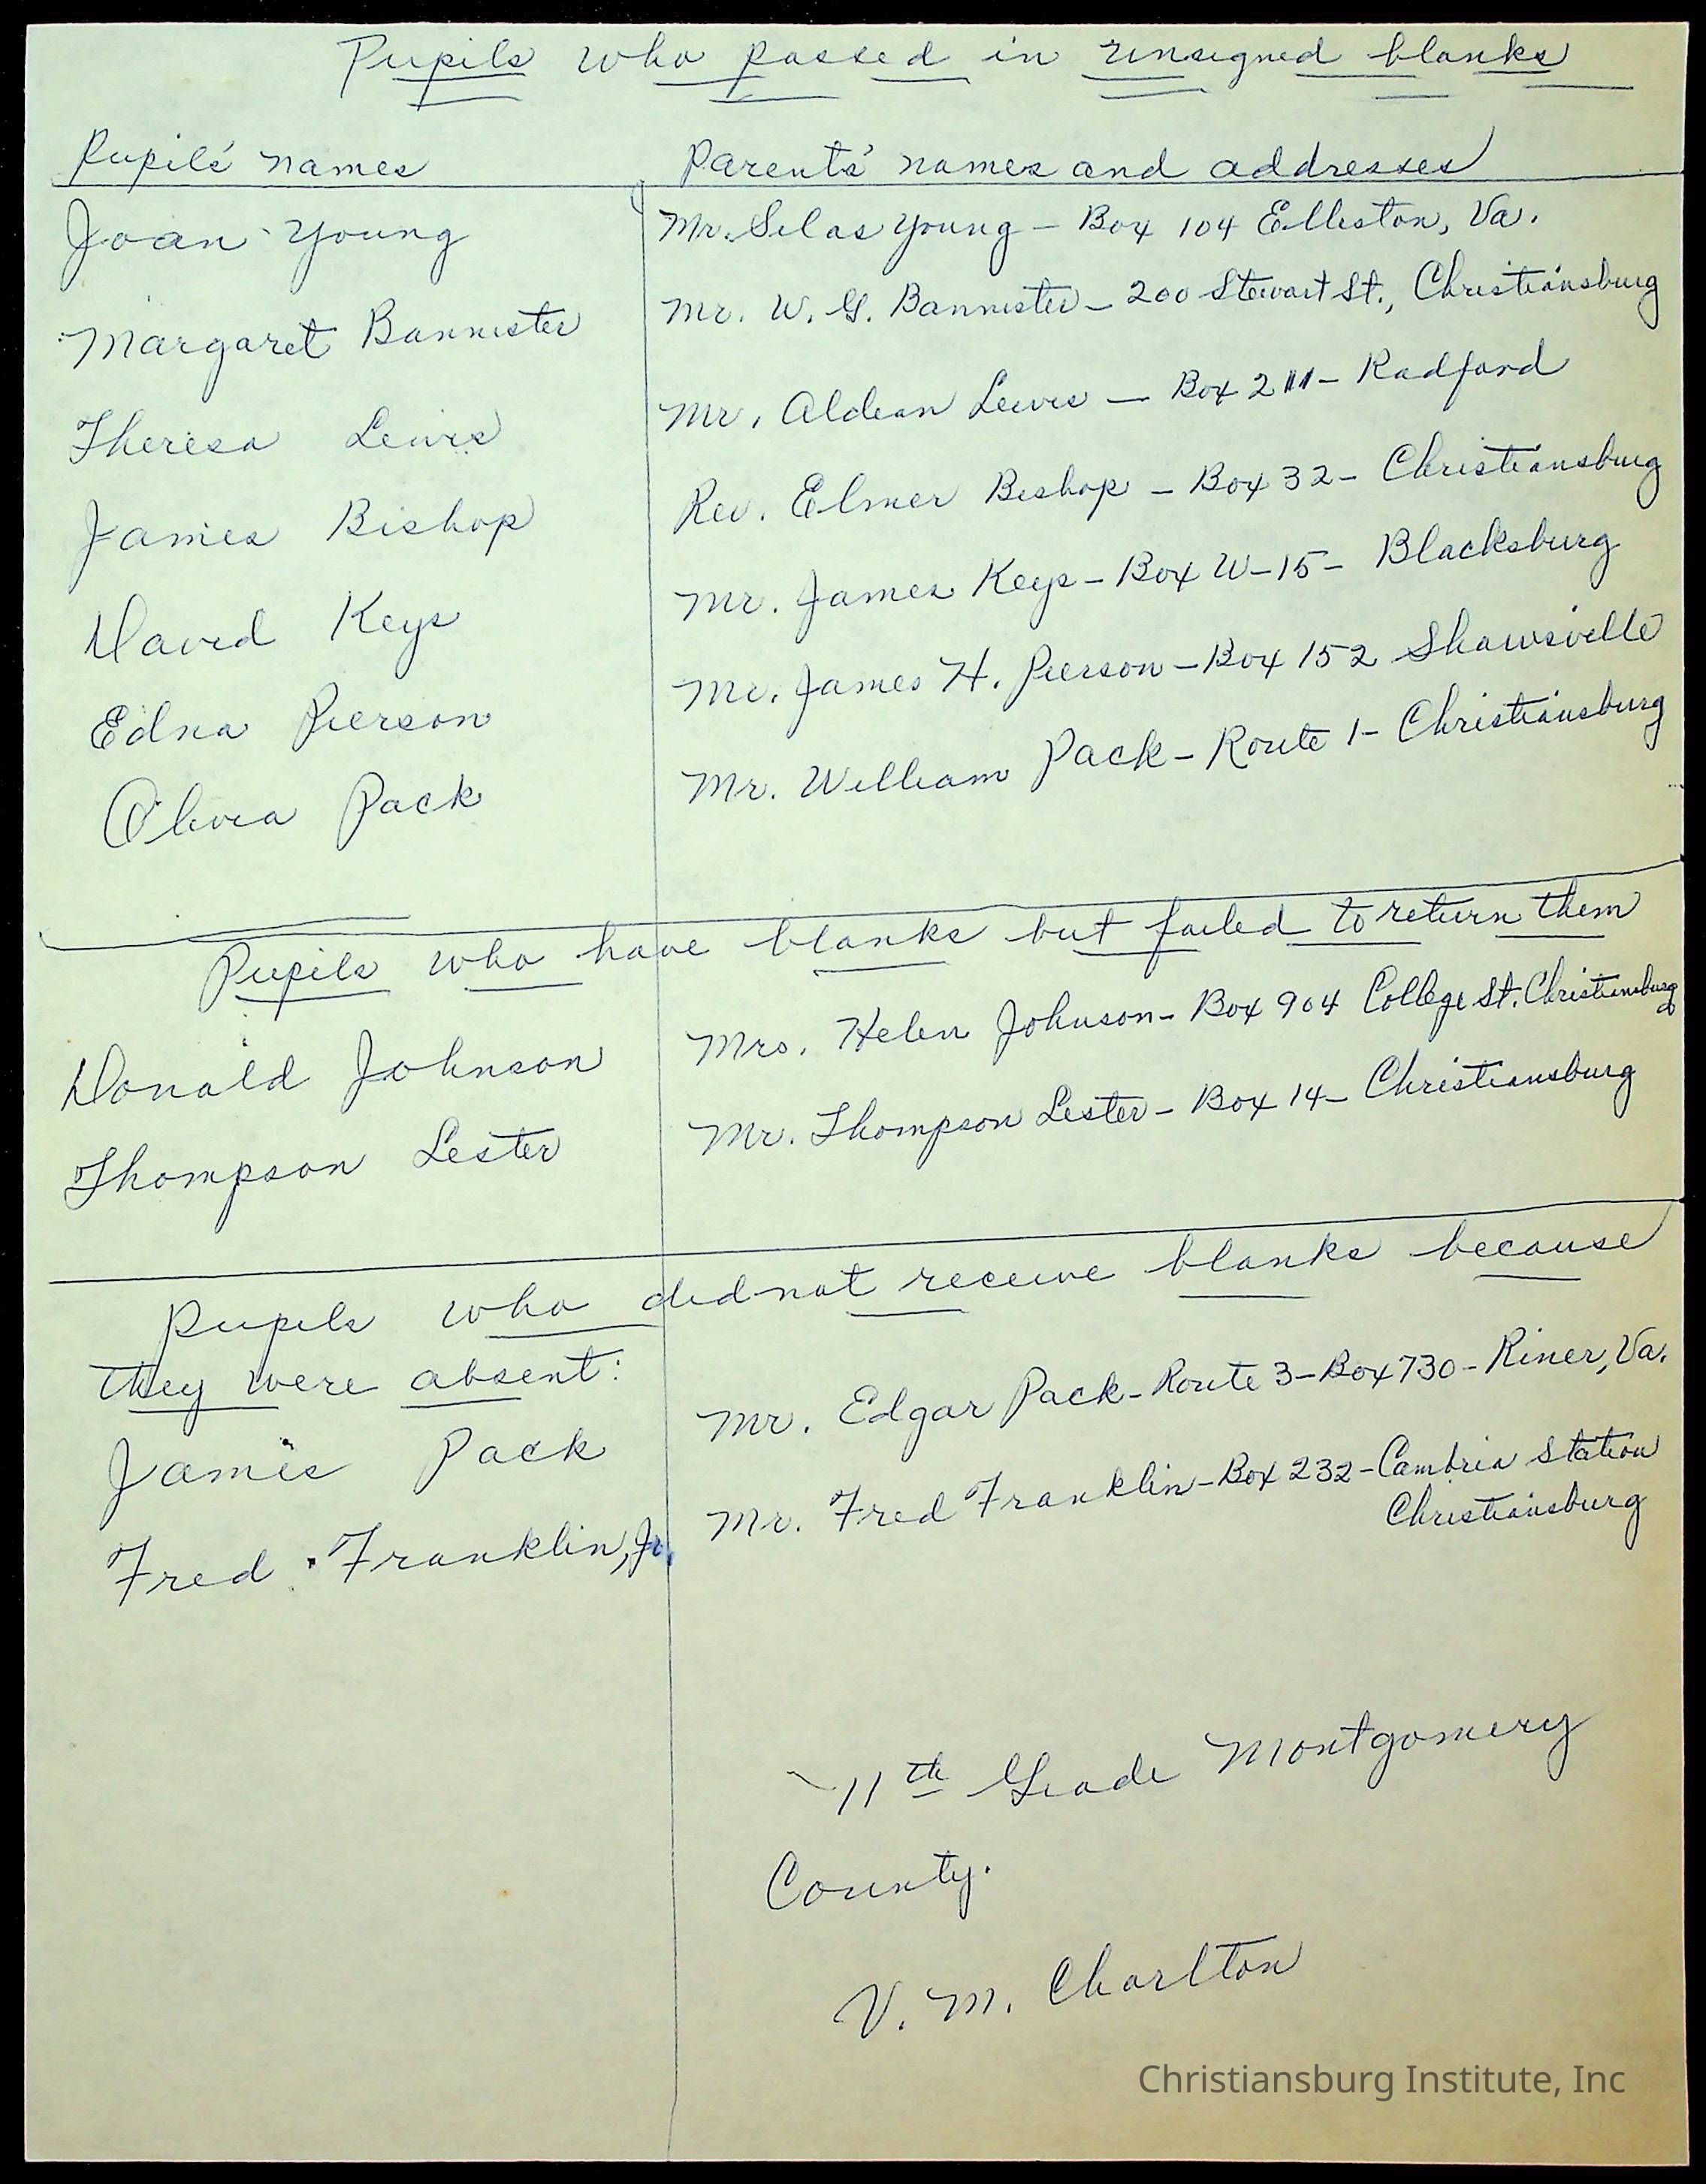 Pupils who passed in unsigned blanks
Pupils' names Parents' names and addresses
Joan Young Mr. Silas Young - Box 104 Elliston, Va.
Margaret Bannister Mr. W. G. Bannister - 200 Stewart St., Christiansburg
Theresa Lewis Mr. Aldean Lewis - Box 2111 - Radford
James Bishop Rev. Elmer Bishop - Box 32 - Christiansburg
David Keys Mr. James Keys - Box W-15 - Blacksburg
Edna Pierson Mr. James H. Pierson - Box 152 Shawsville
Olivia Pack Mr. William Pack - Route 1 - Christiansburg
Pupils who have blanks but failed to return them
Donald Johnson Mrs. Helen Johnson - Box 904 College St. Christiansburg
Thompson Lester Mr. Thompson Lester - Box 14 - Christiansburg
Pupils who did not receive blanks because
they were absent:
James Pack Mr. Edgar Pack - Route 3 - Box 730 - Riner, Va.
Fred Franklin, Jr. Mr. Fred Franklin - Box 232 - Cambria Station
Christiansburg
11th Grade Montgomery
County.
V. M. Charlton
Christiansburg Institute, Inc